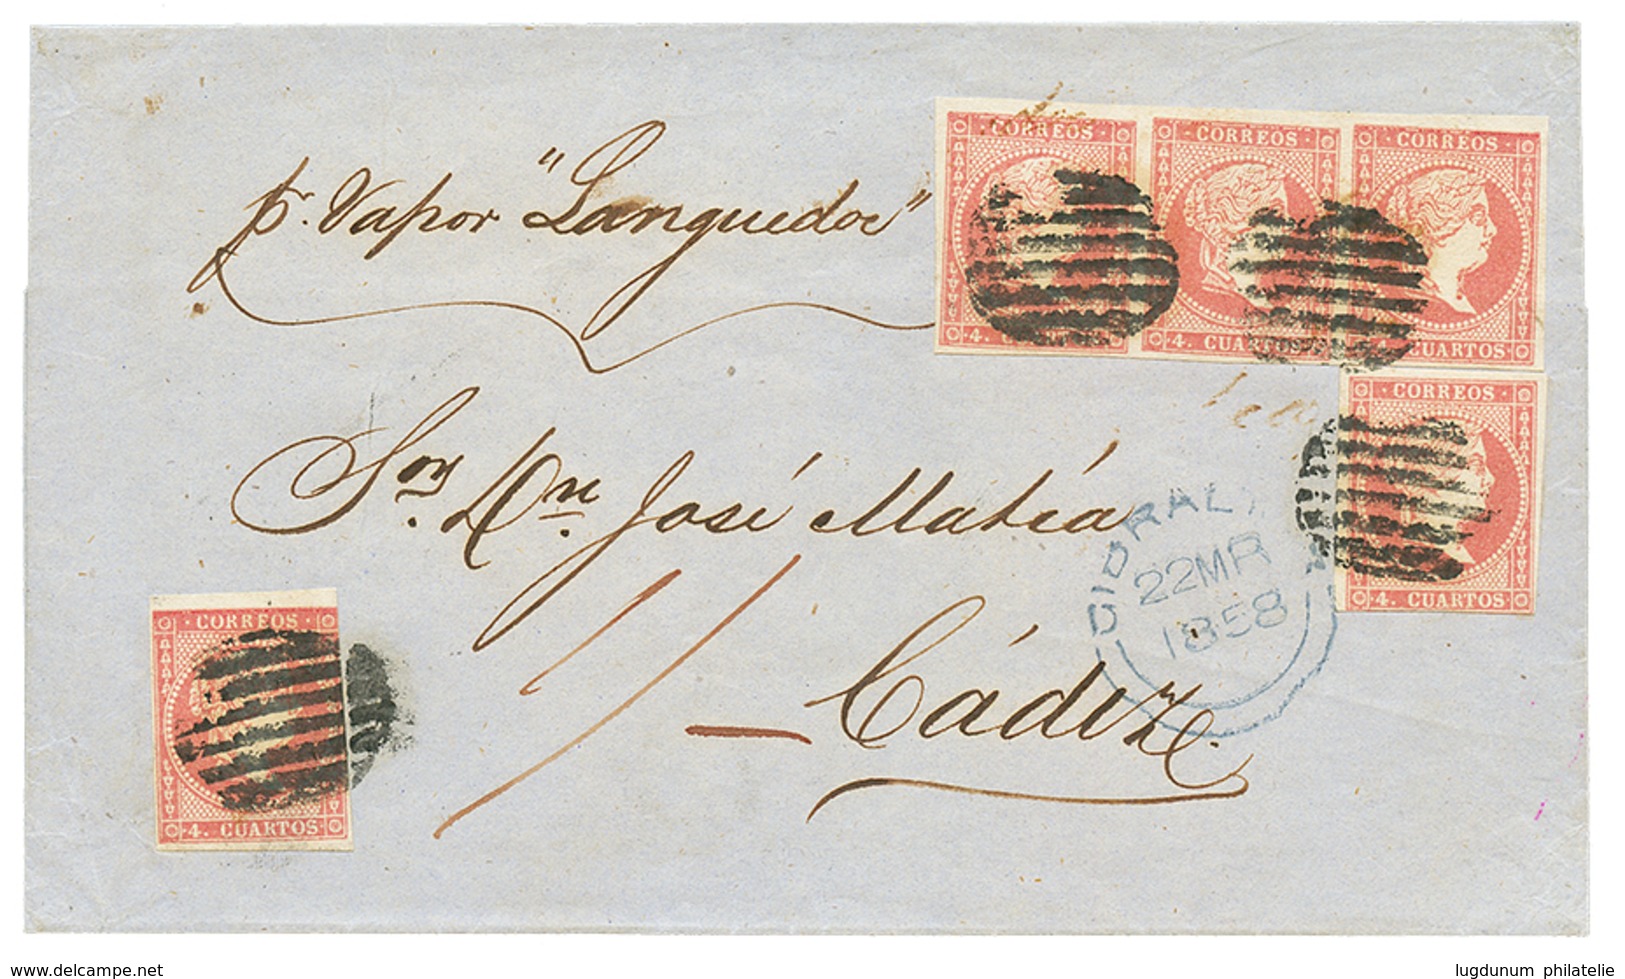 pr. Vapor "Languedoc"
CORREOS CORREOS CORREOS
4. CUARTOS 4. CUARTOS
CORREOS
4. CUARTOS
Sor. Dn. José Matía
GIBRALT
22MR
1858
Cádiz.
CORREOS
4. CUARTOS
www.delcampe.net
lugdunum philatelie